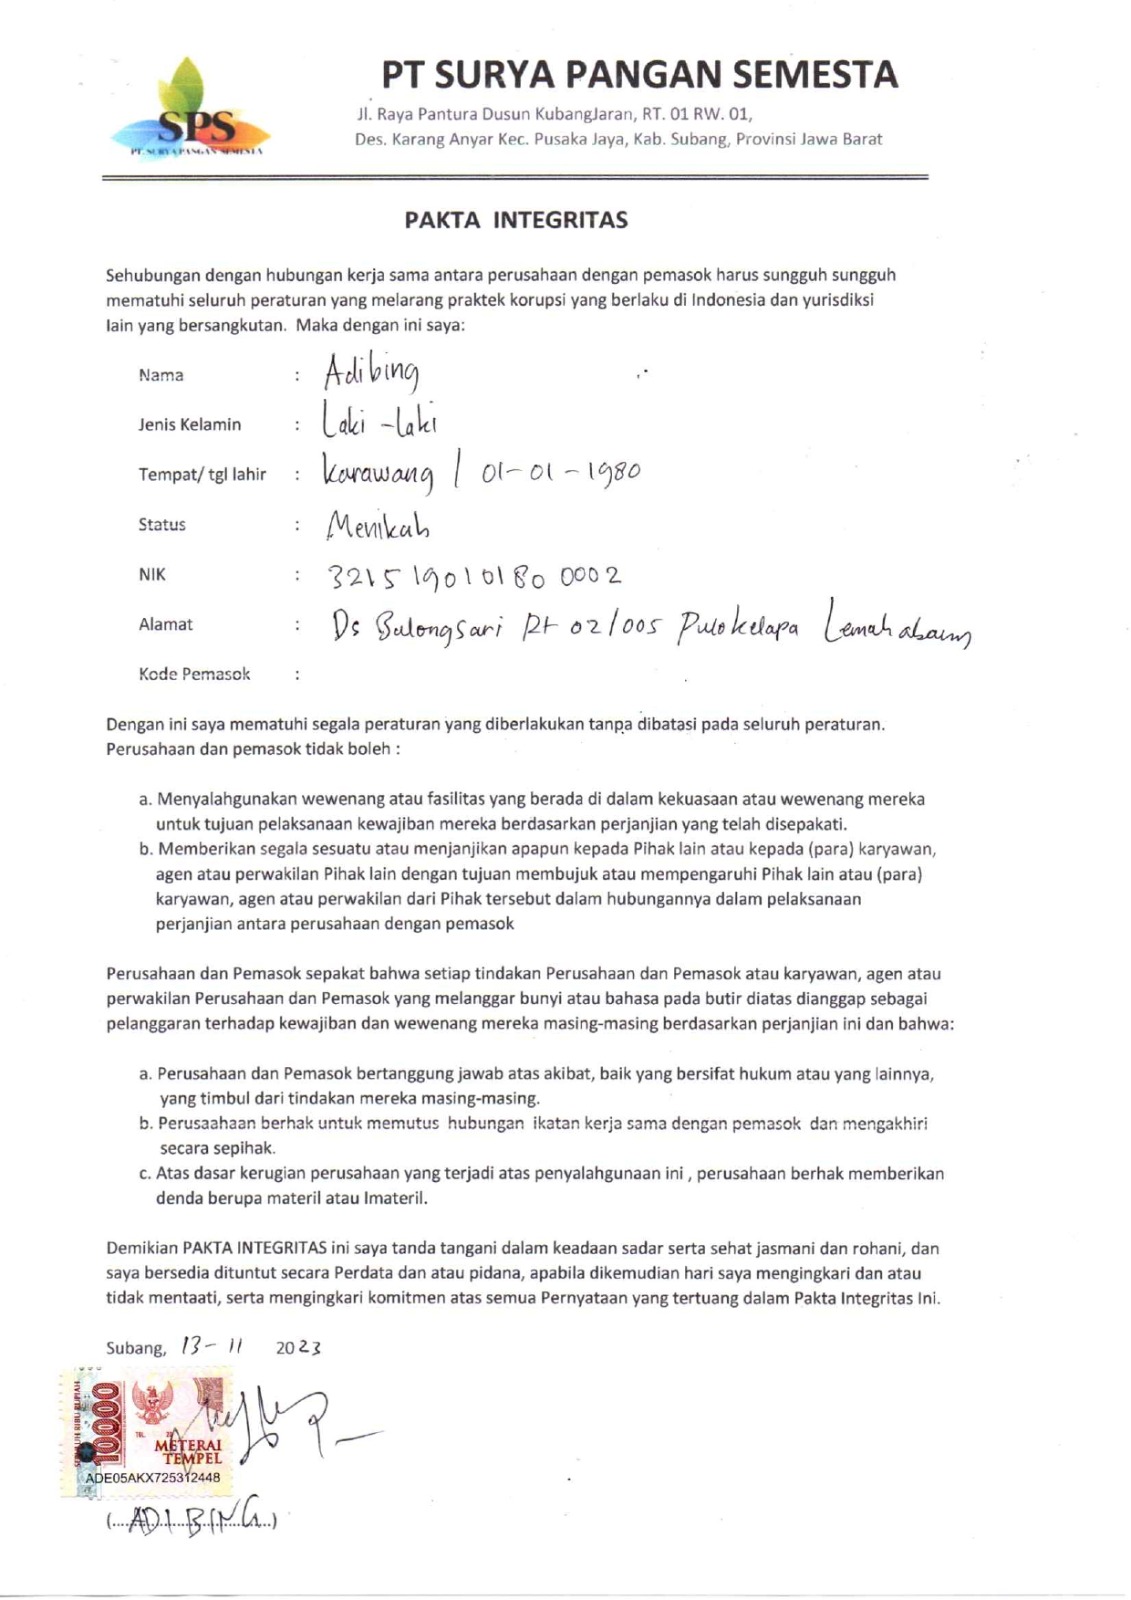 SPS
PT. SURYA PANGAN SEMESTA
PT SURYA PANGAN SEMESTA
Jl. Raya Pantura Dusun KubangJaran, RT. 01 RW. 01,
Des. Karang Anyar Kec. Pusaka Jaya, Kab. Subang, Provinsi Jawa Barat
PAKTA INTEGRITAS
Sehubungan dengan hubungan kerja sama antara perusahaan dengan pemasok harus sungguh sungguh
mematuhi seluruh peraturan yang melarang praktek korupsi yang berlaku di Indonesia dan yurisdiksi
lain yang bersangkutan. Maka dengan ini saya:
Nama : Adibing
Jenis Kelamin : Laki - laki
Tempat/ tgl lahir : Karawang / 01-01-1980
Status : Menikah
NIK : 3215190101800002
Alamat : Ds Bulongsari Rt 02/005 Pulokelapa Lemahabang
Kode Pemasok :
Dengan ini saya mematuhi segala peraturan yang diberlakukan tanpa dibatasi pada seluruh peraturan.
Perusahaan dan pemasok tidak boleh :
a. Menyalahgunakan wewenang atau fasilitas yang berada di dalam kekuasaan atau wewenang mereka
untuk tujuan pelaksanaan kewajiban mereka berdasarkan perjanjian yang telah disepakati.
b. Memberikan segala sesuatu atau menjanjikan apapun kepada Pihak lain atau kepada (para) karyawan,
agen atau perwakilan Pihak lain dengan tujuan membujuk atau mempengaruhi Pihak lain atau (para)
karyawan, agen atau perwakilan dari Pihak tersebut dalam hubungannya dalam pelaksanaan
perjanjian antara perusahaan dengan pemasok
Perusahaan dan Pemasok sepakat bahwa setiap tindakan Perusahaan dan Pemasok atau karyawan, agen atau
perwakilan Perusahaan dan Pemasok yang melanggar bunyi atau bahasa pada butir diatas dianggap sebagai
pelanggaran terhadap kewajiban dan wewenang mereka masing-masing berdasarkan perjanjian ini dan bahwa:
a. Perusahaan dan Pemasok bertanggung jawab atas akibat, baik yang bersifat hukum atau yang lainnya,
yang timbul dari tindakan mereka masing-masing.
b. Perusaahaan berhak untuk memutus hubungan ikatan kerja sama dengan pemasok dan mengakhiri
secara sepihak.
c. Atas dasar kerugian perusahaan yang terjadi atas penyalahgunaan ini , perusahaan berhak memberikan
denda berupa materil atau Imateril.
Demikian PAKTA INTEGRITAS ini saya tanda tangani dalam keadaan sadar serta sehat jasmani dan rohani, dan
saya bersedia dituntut secara Perdata dan atau pidana, apabila dikemudian hari saya mengingkari dan atau
tidak mentaati, serta mengingkari komitmen atas semua Pernyataan yang tertuang dalam Pakta Integritas Ini.
Subang, 13-11 2023
SEPULUH RIBU RUPIAH
10000
METERAI
TEMPEL
ADE05AKX725312448
(....ADI BING..)